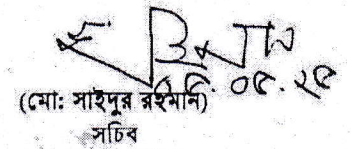 ০৫.২৫
(মোঃ সাইদুর রহমান)
সচিব